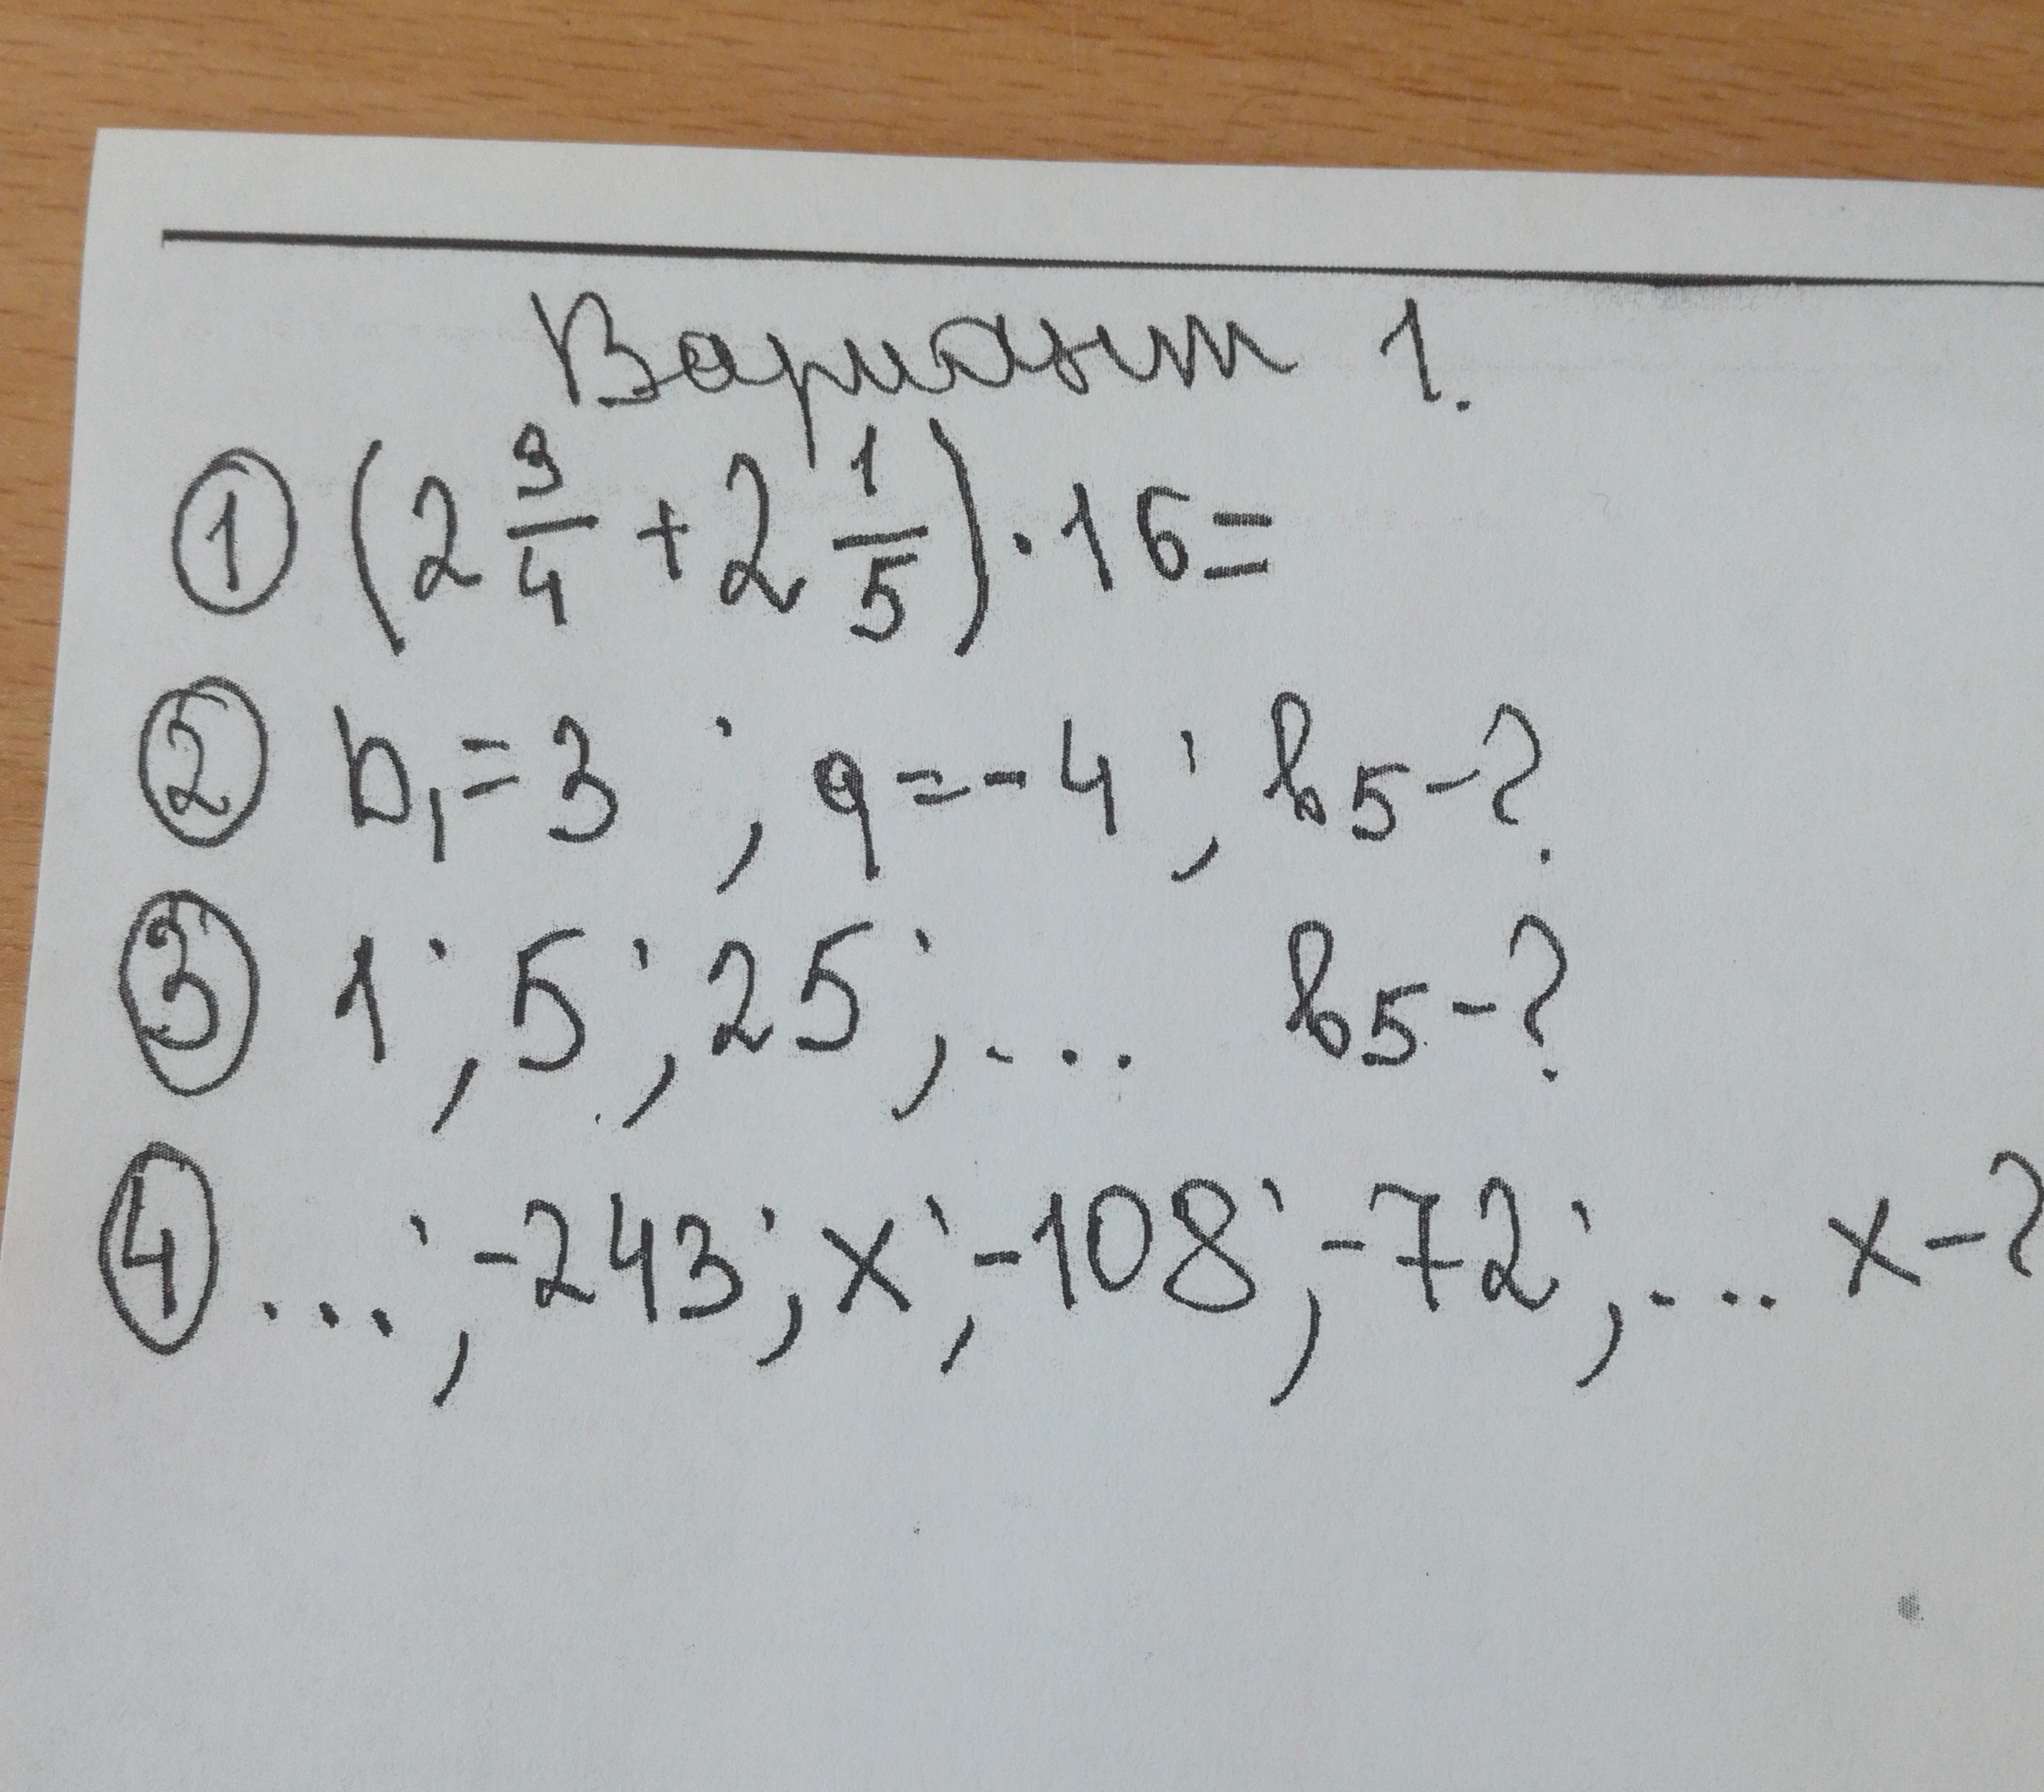 Вариант 1.
① (2 3/4 + 2 1/5) · 16 =
② b₁ = 3 ; q = -4 ; b₅ - ?
③ 1 ; 5 ; 25 ; ... b₅ - ?
④ ... ; -243 ; x ; -108 ; -72 ; ... x - ?